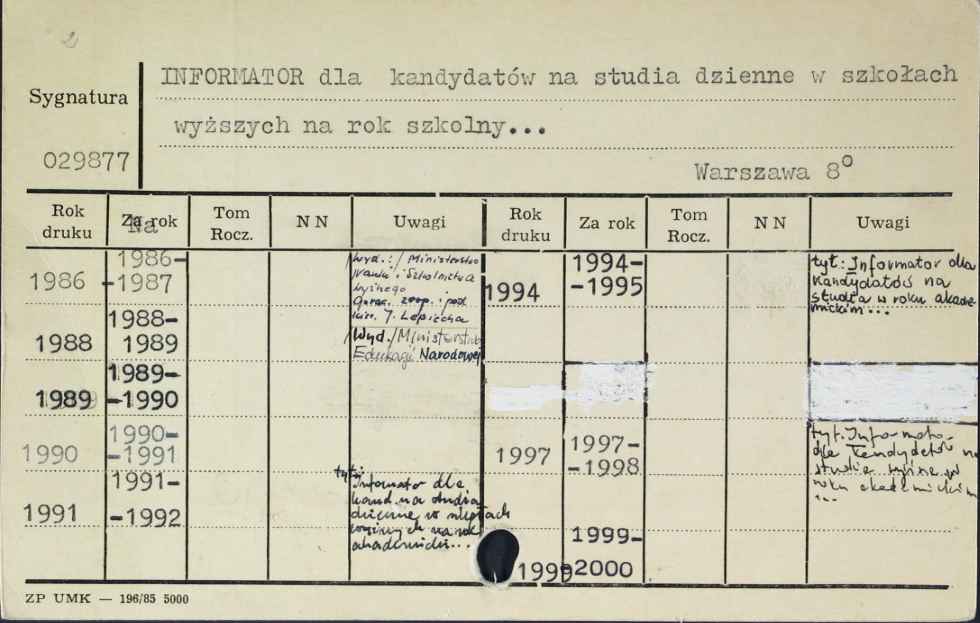 2
INFORMATOR dla kandydatów na studia dzienne w szkołach
Sygnatura
wyższych na rok szkolny...
029877
Warszawa 8°
Rok druku
Za rok
Na
Tom Rocz.
N N
Uwagi
Rok druku
Za rok
Tom Rocz.
N N
Uwagi
1986
1986-
-1987
Wyd.: / Ministerstwo
Nauki i Szkolnictwa
Wyższego
Oprac. zesp. i pod
kier. J. Lepiecha
1988
1988-
1989
Wyd. / Ministerstwo
Edukacji Narodowej
1989
1989-
-1990
1990
1990-
-1991
1991
1991-
-1992
tyt:
Informator dla
kand. na studia
dzienne w
na rok
akademicki...
1994
1994-
-1995
tyt: Informator dla
kandydatów na
studia w roku akade-
mickim...
1997
1997-
-1998
tyt. Informator
dla kandydatów na
studia wyższe w
roku akademickim
...
1999
1999-
-2000
ZP UMK — 196/85 5000